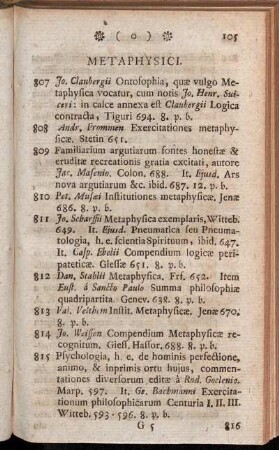 ( o ) 105
METAPHYSICI.
807 Jo. Claubergii Ontosophia, quæ vulgo Me-
taphysica vocatur, cum notis Jo. Henr. Sui-
ceri: in calce annexa est Claubergii Logica
contracta, Tiguri 694. 8. p. b.
808 Andr. Frommen Exercitationes metaphy-
sicæ. Stetin 651.
809 Familiarium argutiarum fontes honestæ &
eruditæ recreationis gratia excitati, autore
Jac. Masenio. Colon. 688. It. Ejusd. Ars
nova argutiarum &c. ibid. 687. 12. p. b.
810 Pet. Musæi Institutiones metaphysicæ. Jenæ
686. 8. p. b.
811 Jo. Scharffii Metaphysica exemplaris, Witteb.
649. It. Ejusd. Pneumatica seu Pneuma-
tologia, h. e. scientia Spirituum, ibid. 647.
It. Casp. Ebelii Compendium logicæ peri-
pateticæ. Giessæ 651. 8. p. b.
812 Dan. Stahlii Metaphysica. Fri. 652. Item
Eust. à Sancto Paulo Summa philosophiæ
quadripartita. Genev. 638. 8. p. b.
813 Val. Velthem Instit. Metaphysicæ. Jenæ 670.
8. p. b.
814 Jo. Weissen Compendium Metaphysicæ re-
cognitum. Giess. Hassor. 688. 8. p. b.
815 Psychologia, h. e. de hominis perfectione,
animo, & inprimis ortu hujus, commen-
tationes diversorum editæ à Rod. Goclenio.
Marp. 597. It. Ge. Bachmanni Exercitati-
onum philosophicarum Centuria I. II. III.
Witteb. 593-596. 8. p. b.
G 5 816